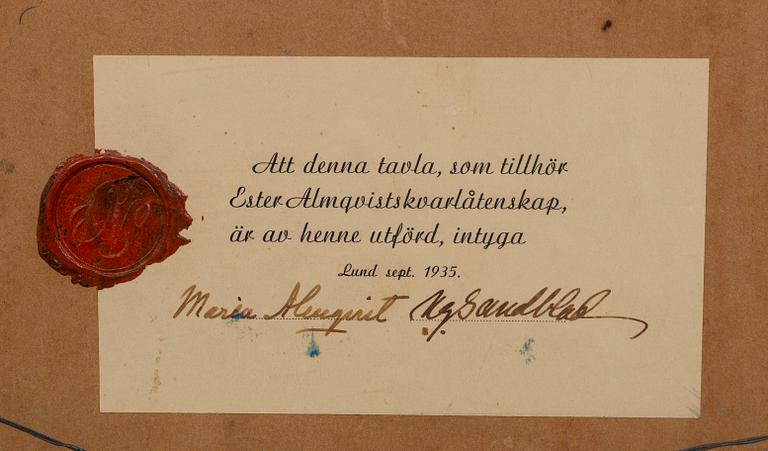 Att denna tavla, som tillhör
Ester Almqvists kvarlåtenskap,
är av henne utförd, intyga
Lund sept. 1935.
Maria Almqvist Sandblad